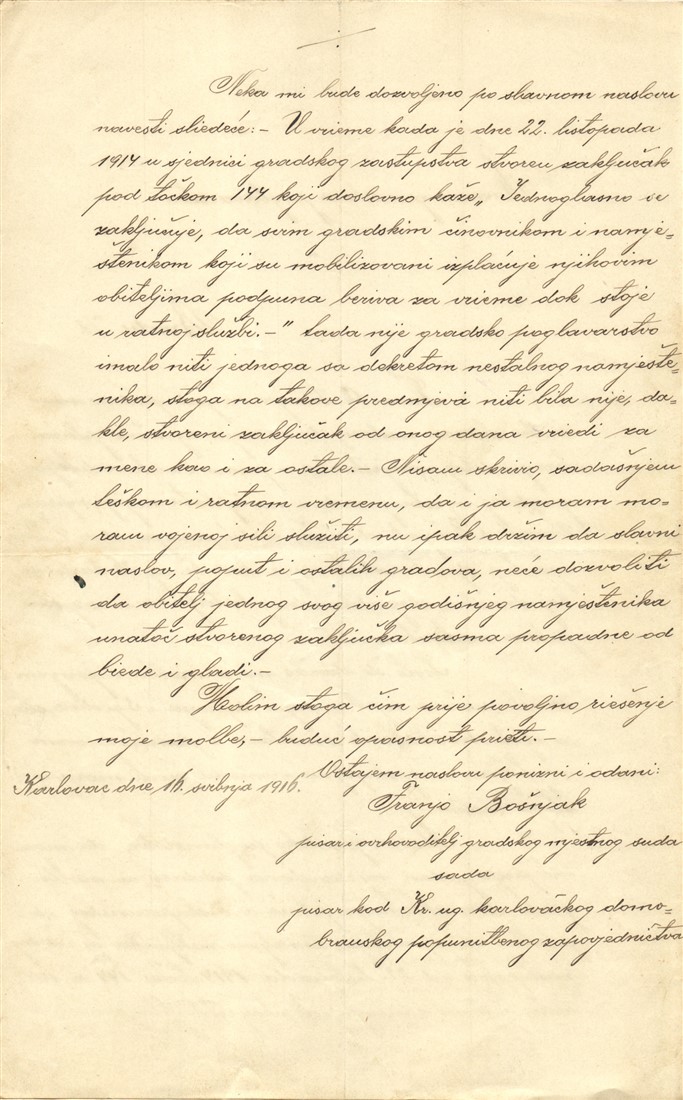 Neka mi bude dozvoljeno po slavnom naslovu
navesti sliedeće:- U vrieme kada je dne 22. listopada
1914 u sjednici gradskog zastupstva stvoren zaključak
pod točkom 144 koji doslovno kaže „ Jednoglasno se
zaključuje, da svim gradskim činovnikom i namje-
štenikom koji su mobilizovani izplaćuje njihovim
obiteljima podpuna beriva za vrieme dok stoje
u ratnoj službi.-" tada nije gradsko poglavarstvo
imalo niti jednoga sa dekretom nestalnog namješte-
nika, stoga na takove predmjeva niti bila nije, da-
kle, stvoreni zaključak od onog dana vriedi za
mene kao i za ostale.- Nisam skrivio, sadašnjem
teškom i ratnom vremenu, da i ja moram mo-
ram vojenoj sili služiti, nu ipak držim da slavni
naslov, poput i ostalih gradova, neće dozvoliti
da obitelj jednog svog više godišnjeg namještenika
unatoč stvorenog zaključka sasma propadne od
biede i gladi.-
Molim stoga čim prije povoljno riešenje
moje molbe,- buduć opasnost prieti.-
Ostajem naslovu ponizni i odani:
Karlovac dne 16. svibnja 1916.
Franjo Bošnjak
pisar i ovrhovoditelj gradskog mjestnog suda
sada
pisar kod Kr. ug. karlovačkog domo-
branskog popunitbenog zapovjedničtva